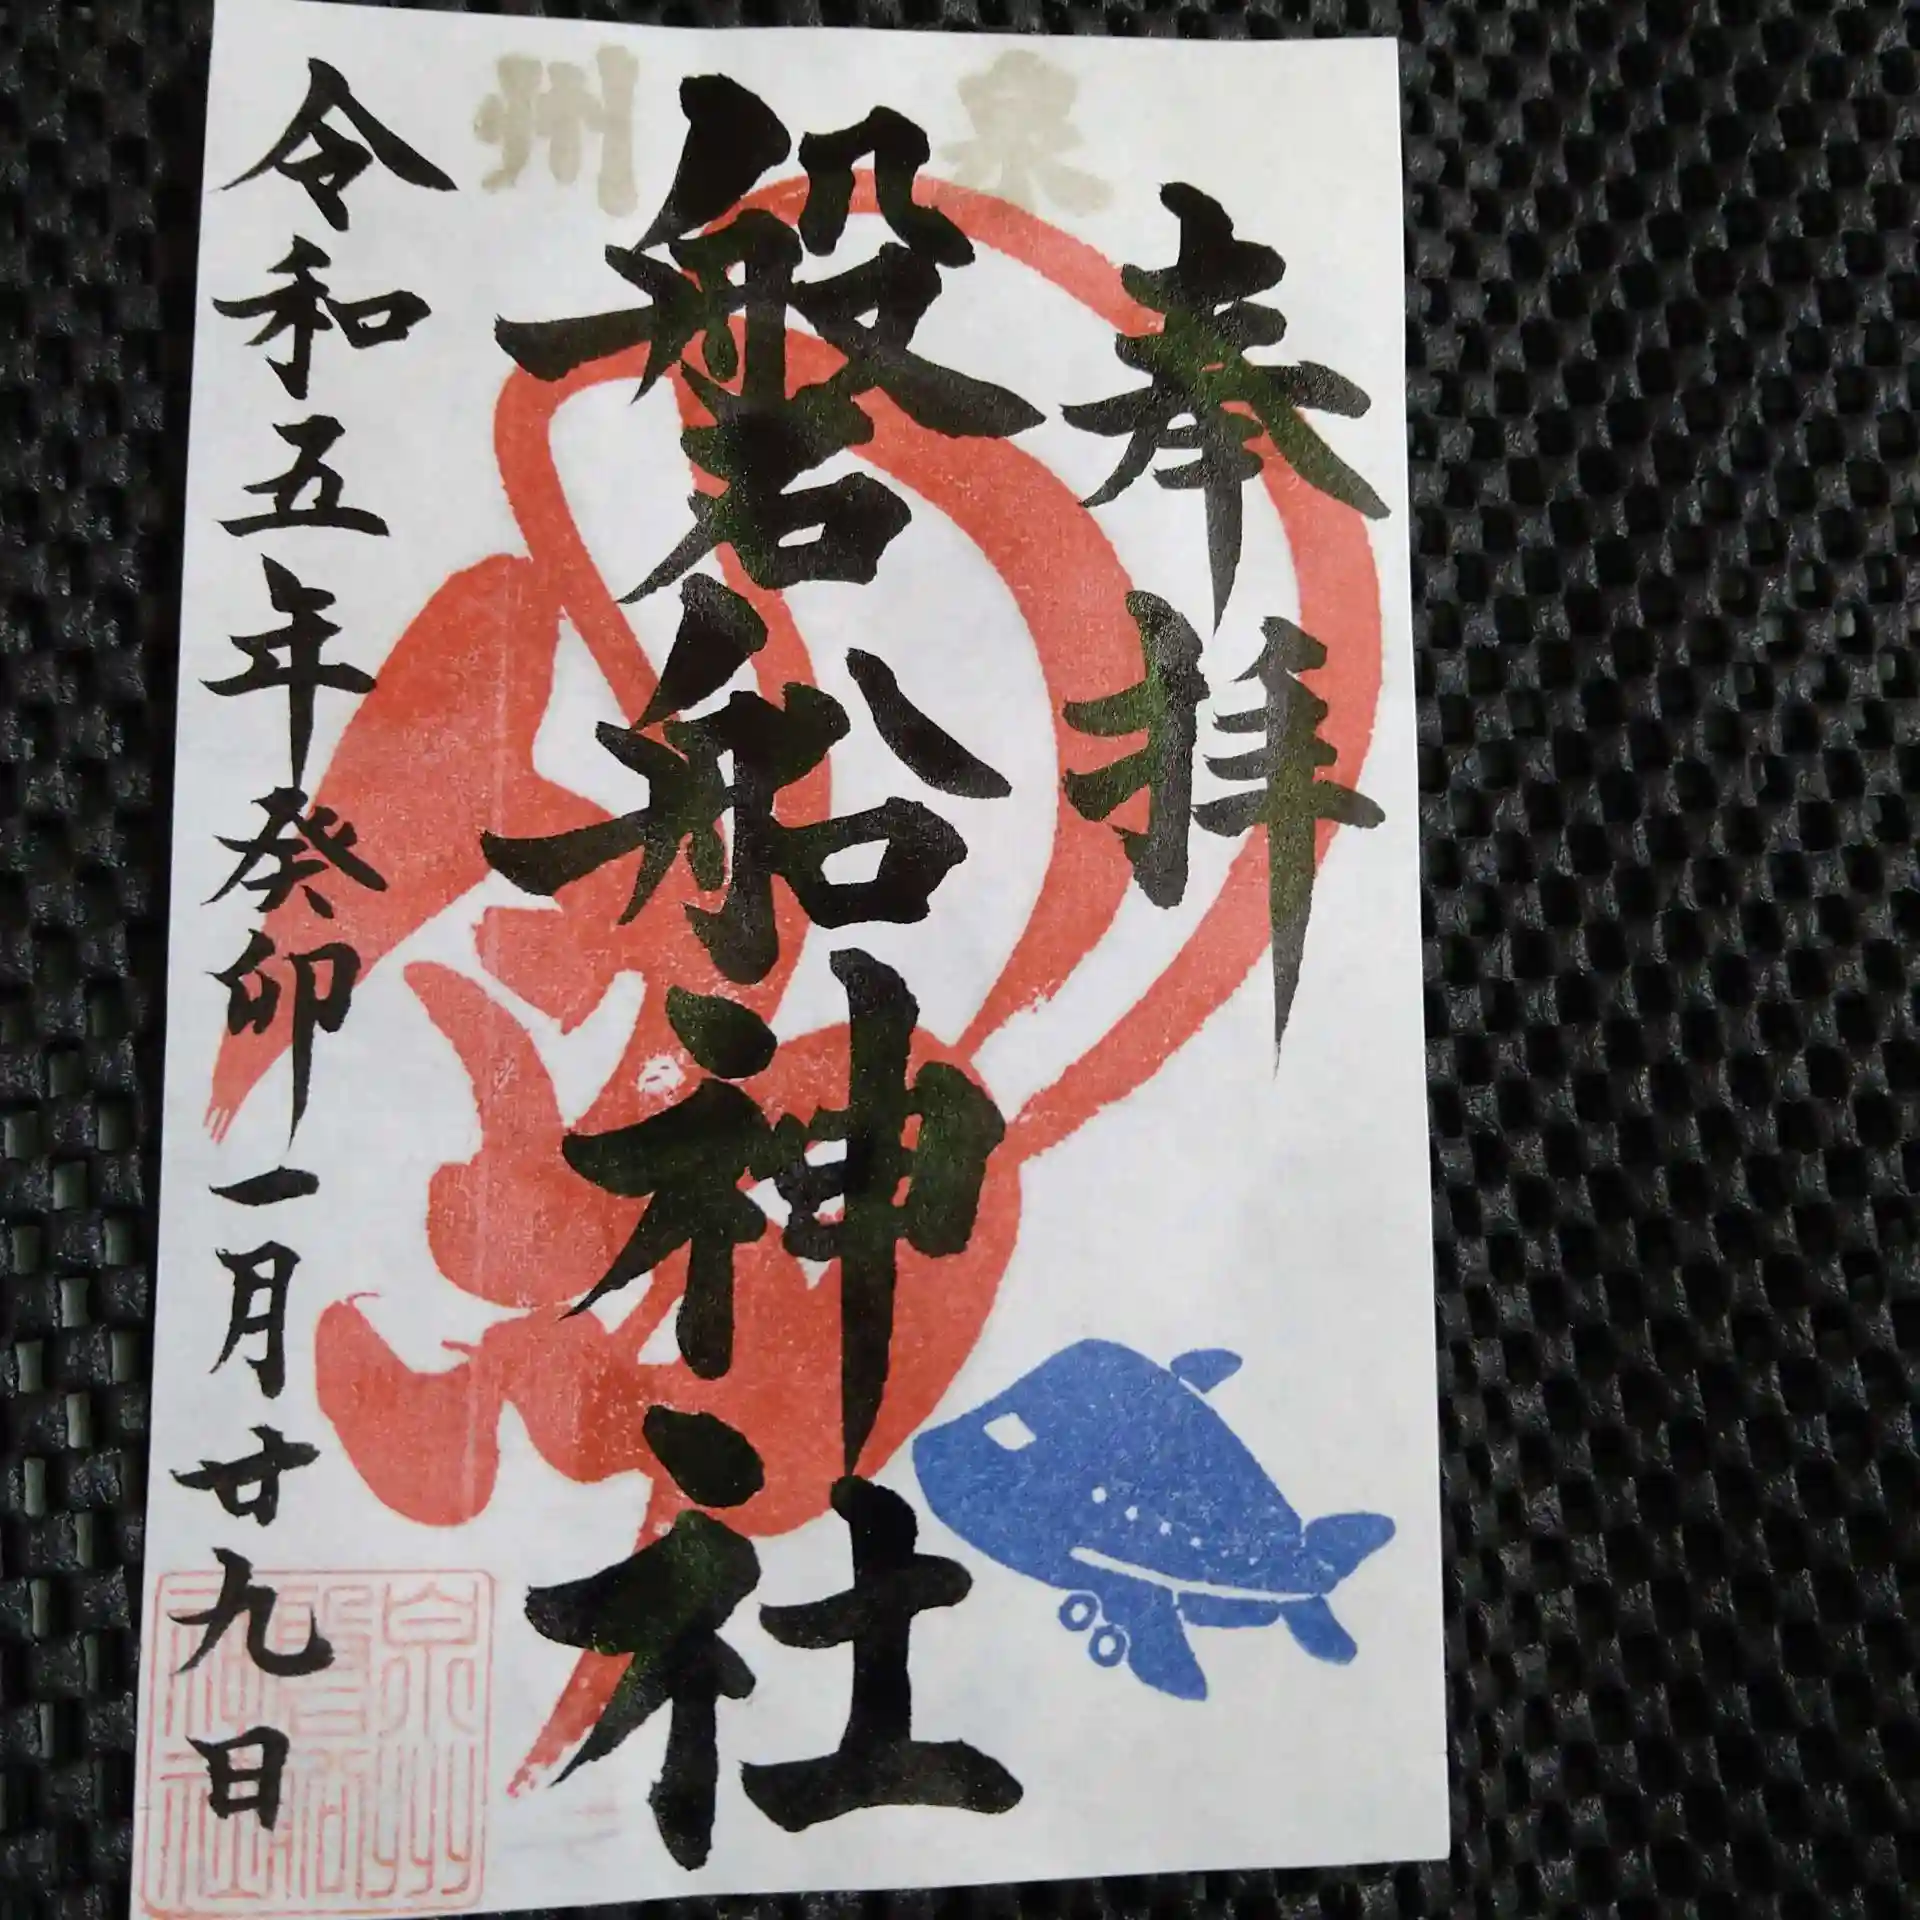 泉州
奉拝
磐船神社
令和五年癸卯一月廿九日
泉州
磐船
神社